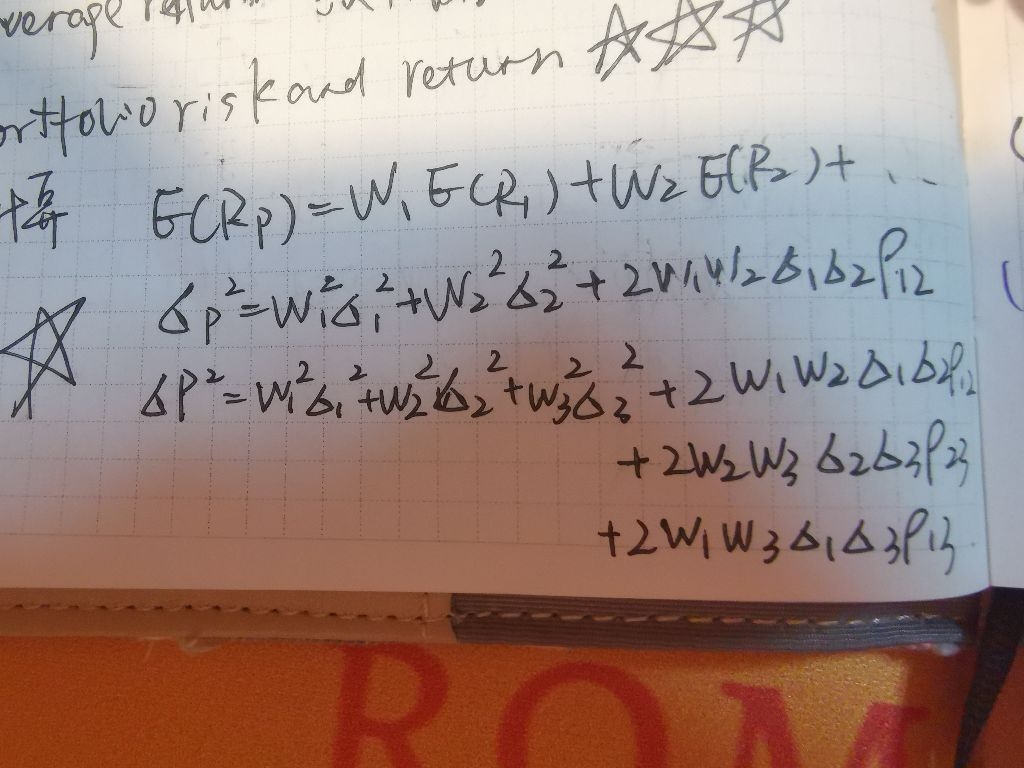 verage return
ortfolio risk and return ☆☆☆
计算 E(Rp)=W₁E(R₁)+W₂E(R₂)+...
☆ σp²=W₁²σ₁²+W₂²σ₂²+2W₁W₂σ₁σ₂ρ₁₂
σp²=W₁²σ₁²+W₂²σ₂²+W₃²σ₃²+2W₁W₂σ₁σ₂ρ₁₂
+2W₂W₃σ₂σ₃ρ₂₃
+2W₁W₃σ₁σ₃ρ₁₃
ROM